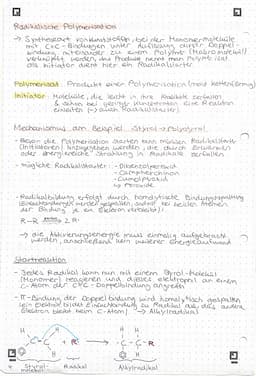 Radikalische Polymerisation
→ Syntheseart von Kunststoffen, bei der Monomermoleküle
mit C=C-Bindungen unter Auflösung dieser Doppel-
bindung miteinander zu einem Polymer (Makromolekül)
verknüpft werden; das Produkt nennt man Polymerisat
als Initiator dient hier ein Radikalstarter
Polymerisat: Produkt einer Polymerisation (meist kettenförmig)
Initiator: Moleküle, die leicht in ihre Radikale zerfallen
& schon bei geringer Konzentration eine Reaktion
Mechanismus am Beispiel Styrol → Polystyrol
• Bevor die Polymerisation starten kann müssen Radikalstarter
(Initiatoren) hinzugegeben werden, die durch Erwärmen
oder energiereiche Strahlung in Radikale zerfallen
• mögliche Radikalstarter: - Dibenzoylperoxid
- Campherchinon
- Cumolperoxid
↳ Peroxide
• Radikalbildung erfolgt durch homolytische Bindungsspaltung
der Bindung je ein Elektron verbleibt)
R-R → 2 R·
→ die Aktivierungsenergie muss einmalig aufgebracht
werden, anschließend kein weiterer Energieaufwand
Startreaktion
• Jedes Radikal kann nun mit einem Styrol-Molekül
(Monomer) reagieren und dieses elektrophil an einem
C-Atom der C=C-Doppelbindung angreifen
• π-Bindung der Doppelbindung wird homolytisch gespalten
Elektron bleibt beim C-Atom) → Alkylradikal
H H
C=C + R· → C-C-R
Styrol-
molekül Radikal Alkylradikal